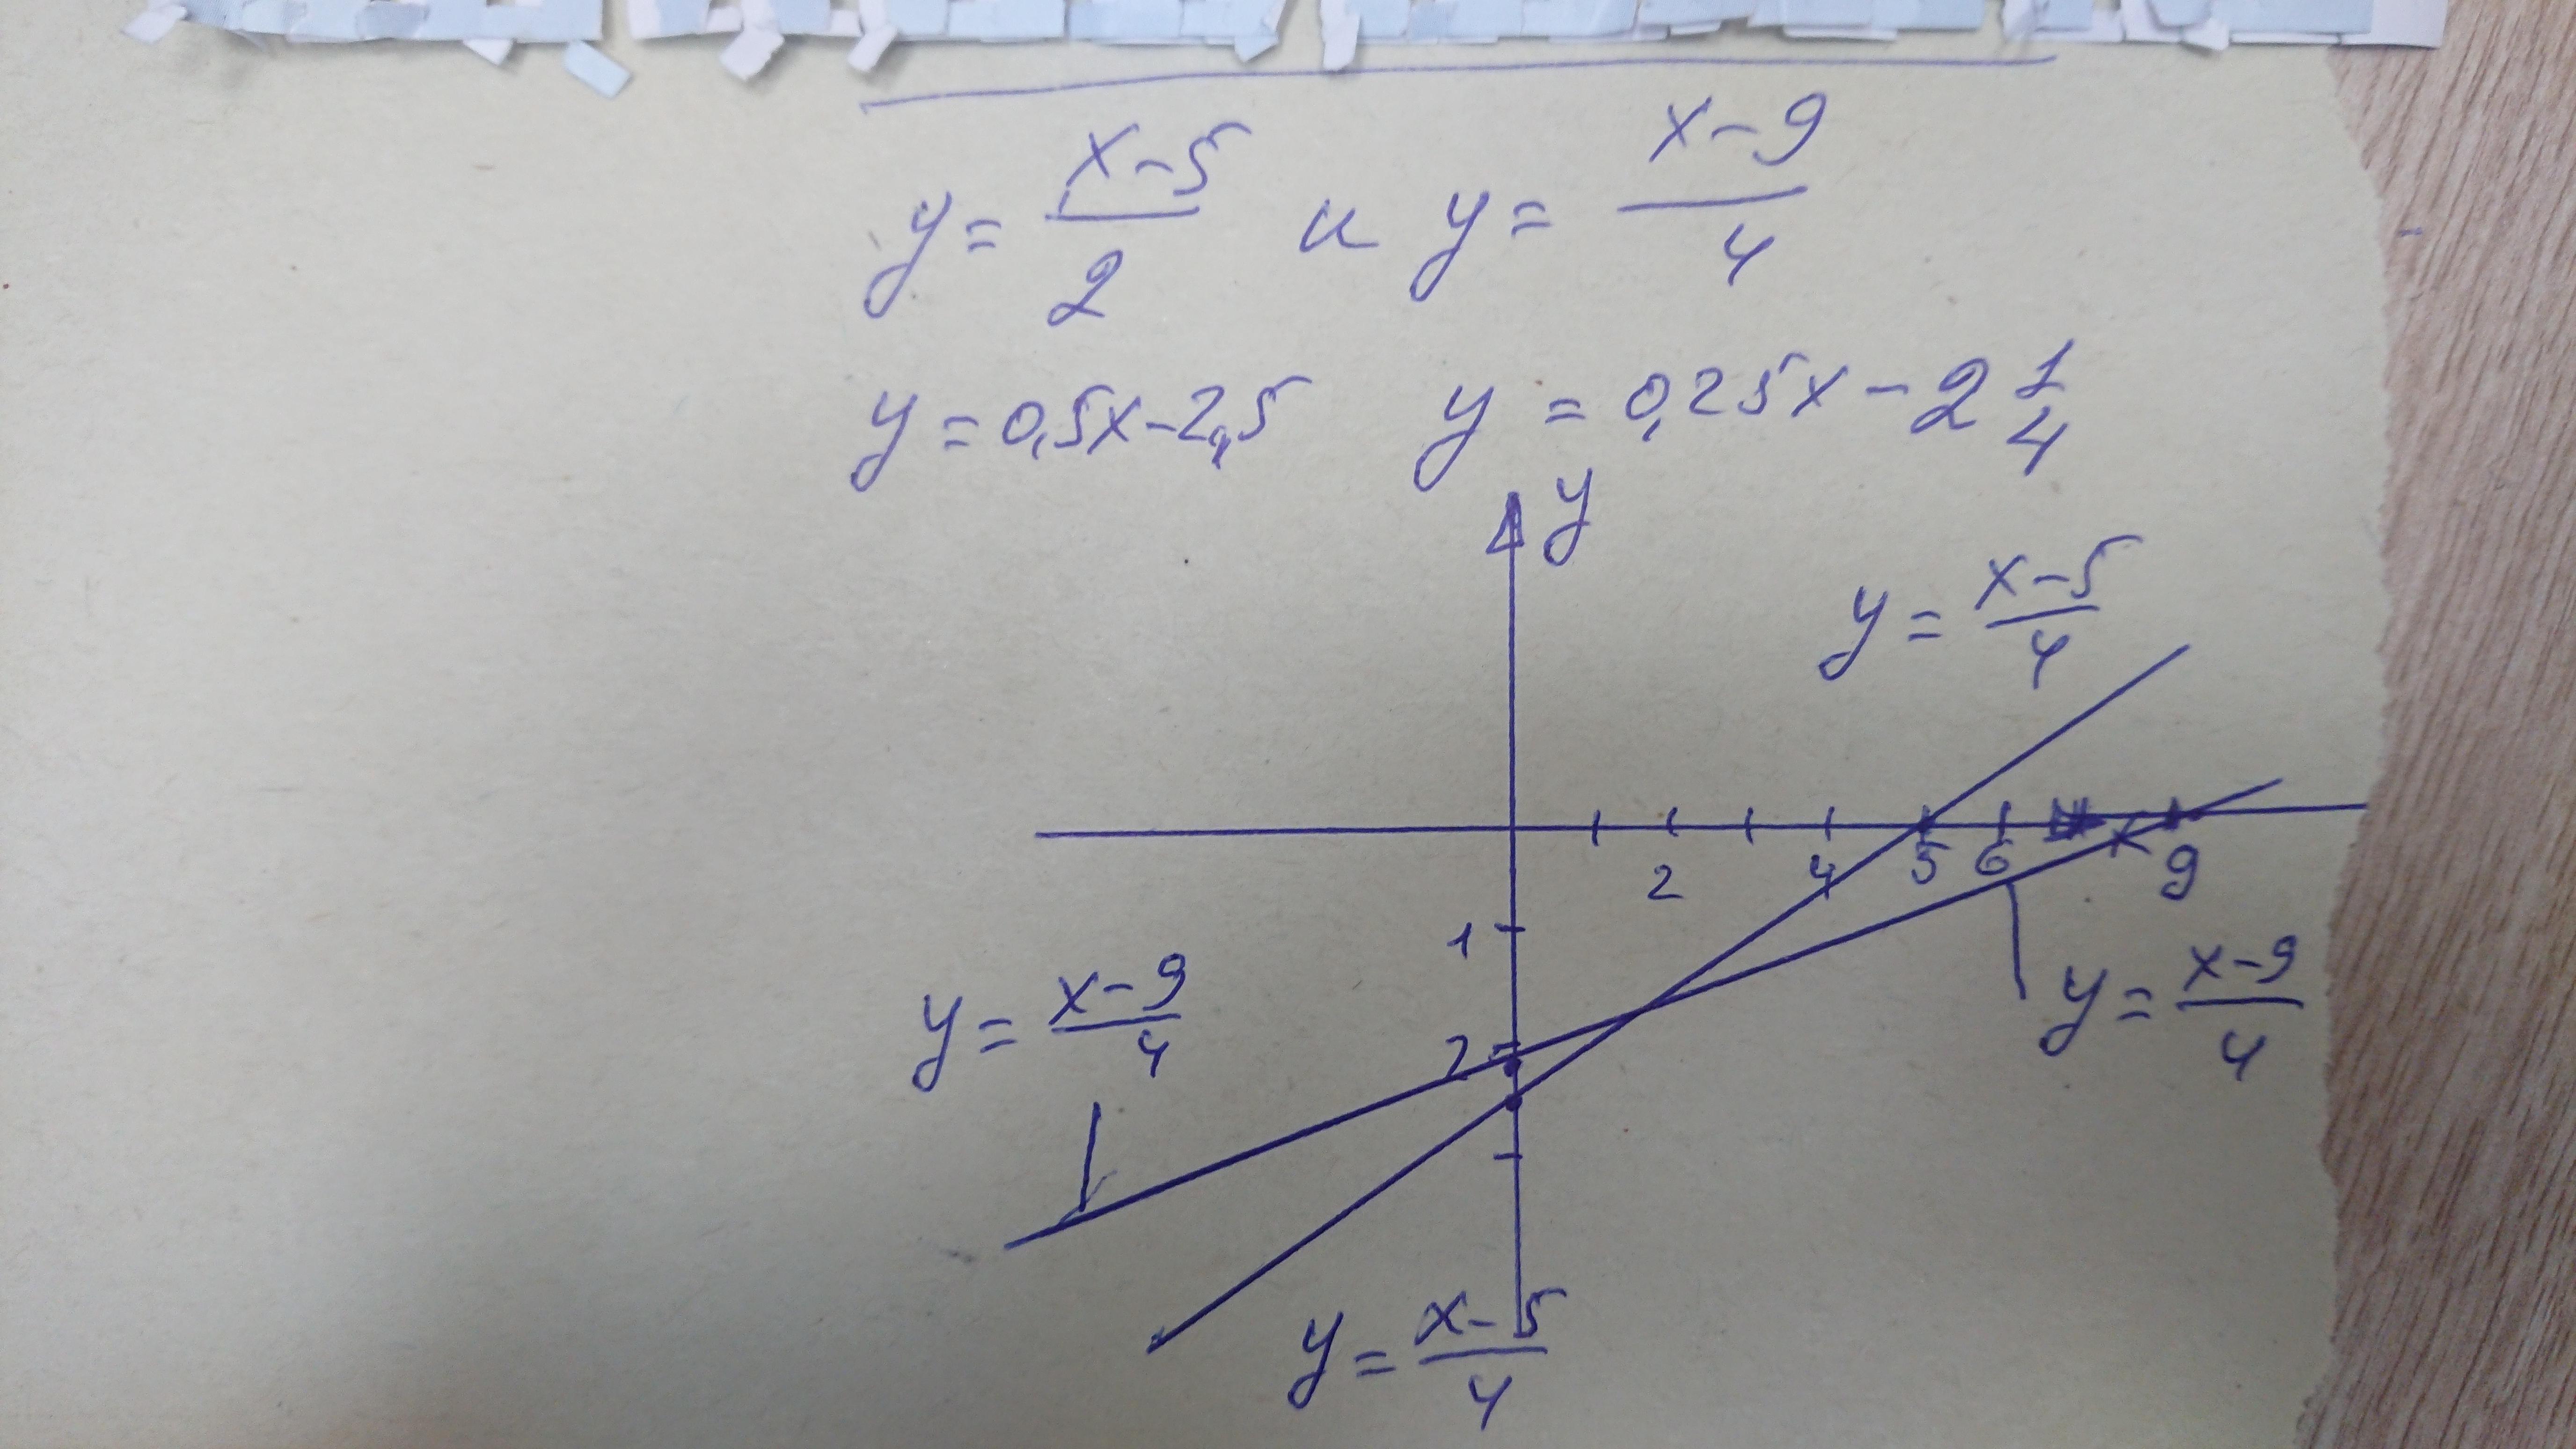 y = x-5/2 и y = x-9/4
y = 0,5x-2,5 y = 0,25x - 2 1/4
y
y = x-5/4
2 4 5 6 9
1
y = x-9/4
y = x-9/4
2
y = x-5/4